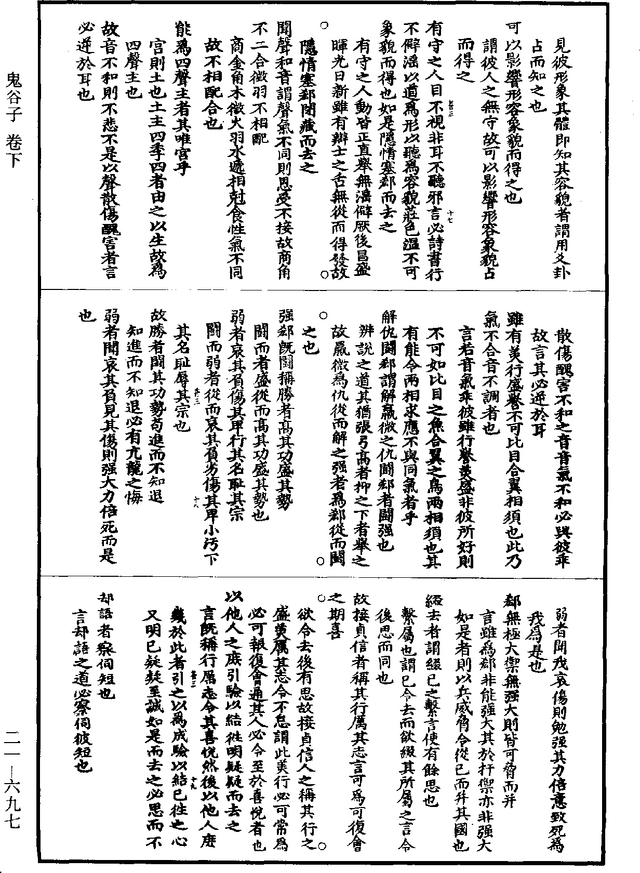 鬼谷子 卷下
二一—六九七
見彼形象其體即知其容貌者謂用爻卦
占而知之也
可以影響形容象貌而得之也
謂彼人之無守故可以影響形容象貌占
而得之
有守之人目不視非耳不聽邪言必詩書行
不僻淫以道為形以聽為容貌莊色溫不可
象貌而得也如是隱情塞郄而去之
有守之人動皆正直舉無淫僻厥後昌盛
暉光日新雖有辯士之舌無從而得發故
隱情塞郄閉藏而去之
聞聲和音謂聲氣不同則恩受不接故商角
不二合徵羽不相配
商金角木徵火羽水遞相剋食性氣不同
故不相配合也
能為四聲主者其唯宮乎
宮則土也土主四季四者由之以生故為
四聲主也
故音不和則不悲不是以聲散傷醜害者言
必逆於耳也
散傷醜害不和之音音氣不和必與彼乖
故言其必逆於耳
雖有美行盛譽不可比目合翼相須也此乃
氣不合音不調者也
言若音氣乖彼雖行譽美盛非彼所好則
不可如比目之魚合翼之鳥兩相須也其
有能令兩相求應不與同氣者乎
解仇鬭郄謂解羸微之仇鬭郄者鬭強也
辨說之道其猶張弓高者抑之下者舉之
故羸微為仇從而解之強者為郄從而鬭
之也
強郄既鬭稱勝者高其功盛其勢
鬭而者盛從而高其功盛其勢也
弱者哀其負傷其卑行其名恥其宗
鬭而弱者從而哀其負劣傷其卑小汚下
其名恥辱其宗也
故勝者聞其功勢苟進而不知退
知進而不知退必有亢龍之悔
弱者聞哀其負見其傷則強大力倍死而是
也
弱者聞我哀傷則勉強其力倍意致死為
我為是也
郄無極大禦無強大則皆可脅而并
言雖為郄非能強大其於扞禦亦非強大
如是者則以兵威脅令從己而并其國也
綴去者謂綴己之繫言使有餘思也
繫屬也謂己令去而欲綴其所屬之言令
後思而同也
故接貞信者稱其行厲其志言可為可復會
之期喜
欲令去後有思故接貞信人之稱其行之
盛美厲其志令不怠謂此美行必可常為
必可報復會通其人必令至於喜悅者也
以他人之庶引驗以結往明疑疑而去之
言既稱行厲志令其喜悅然後以他人庶
幾於此者引之以為成驗以結己往之心
又明已疑疑至誠如是而去之必思而不
却語者察伺短也
言却語之道必察伺彼短也